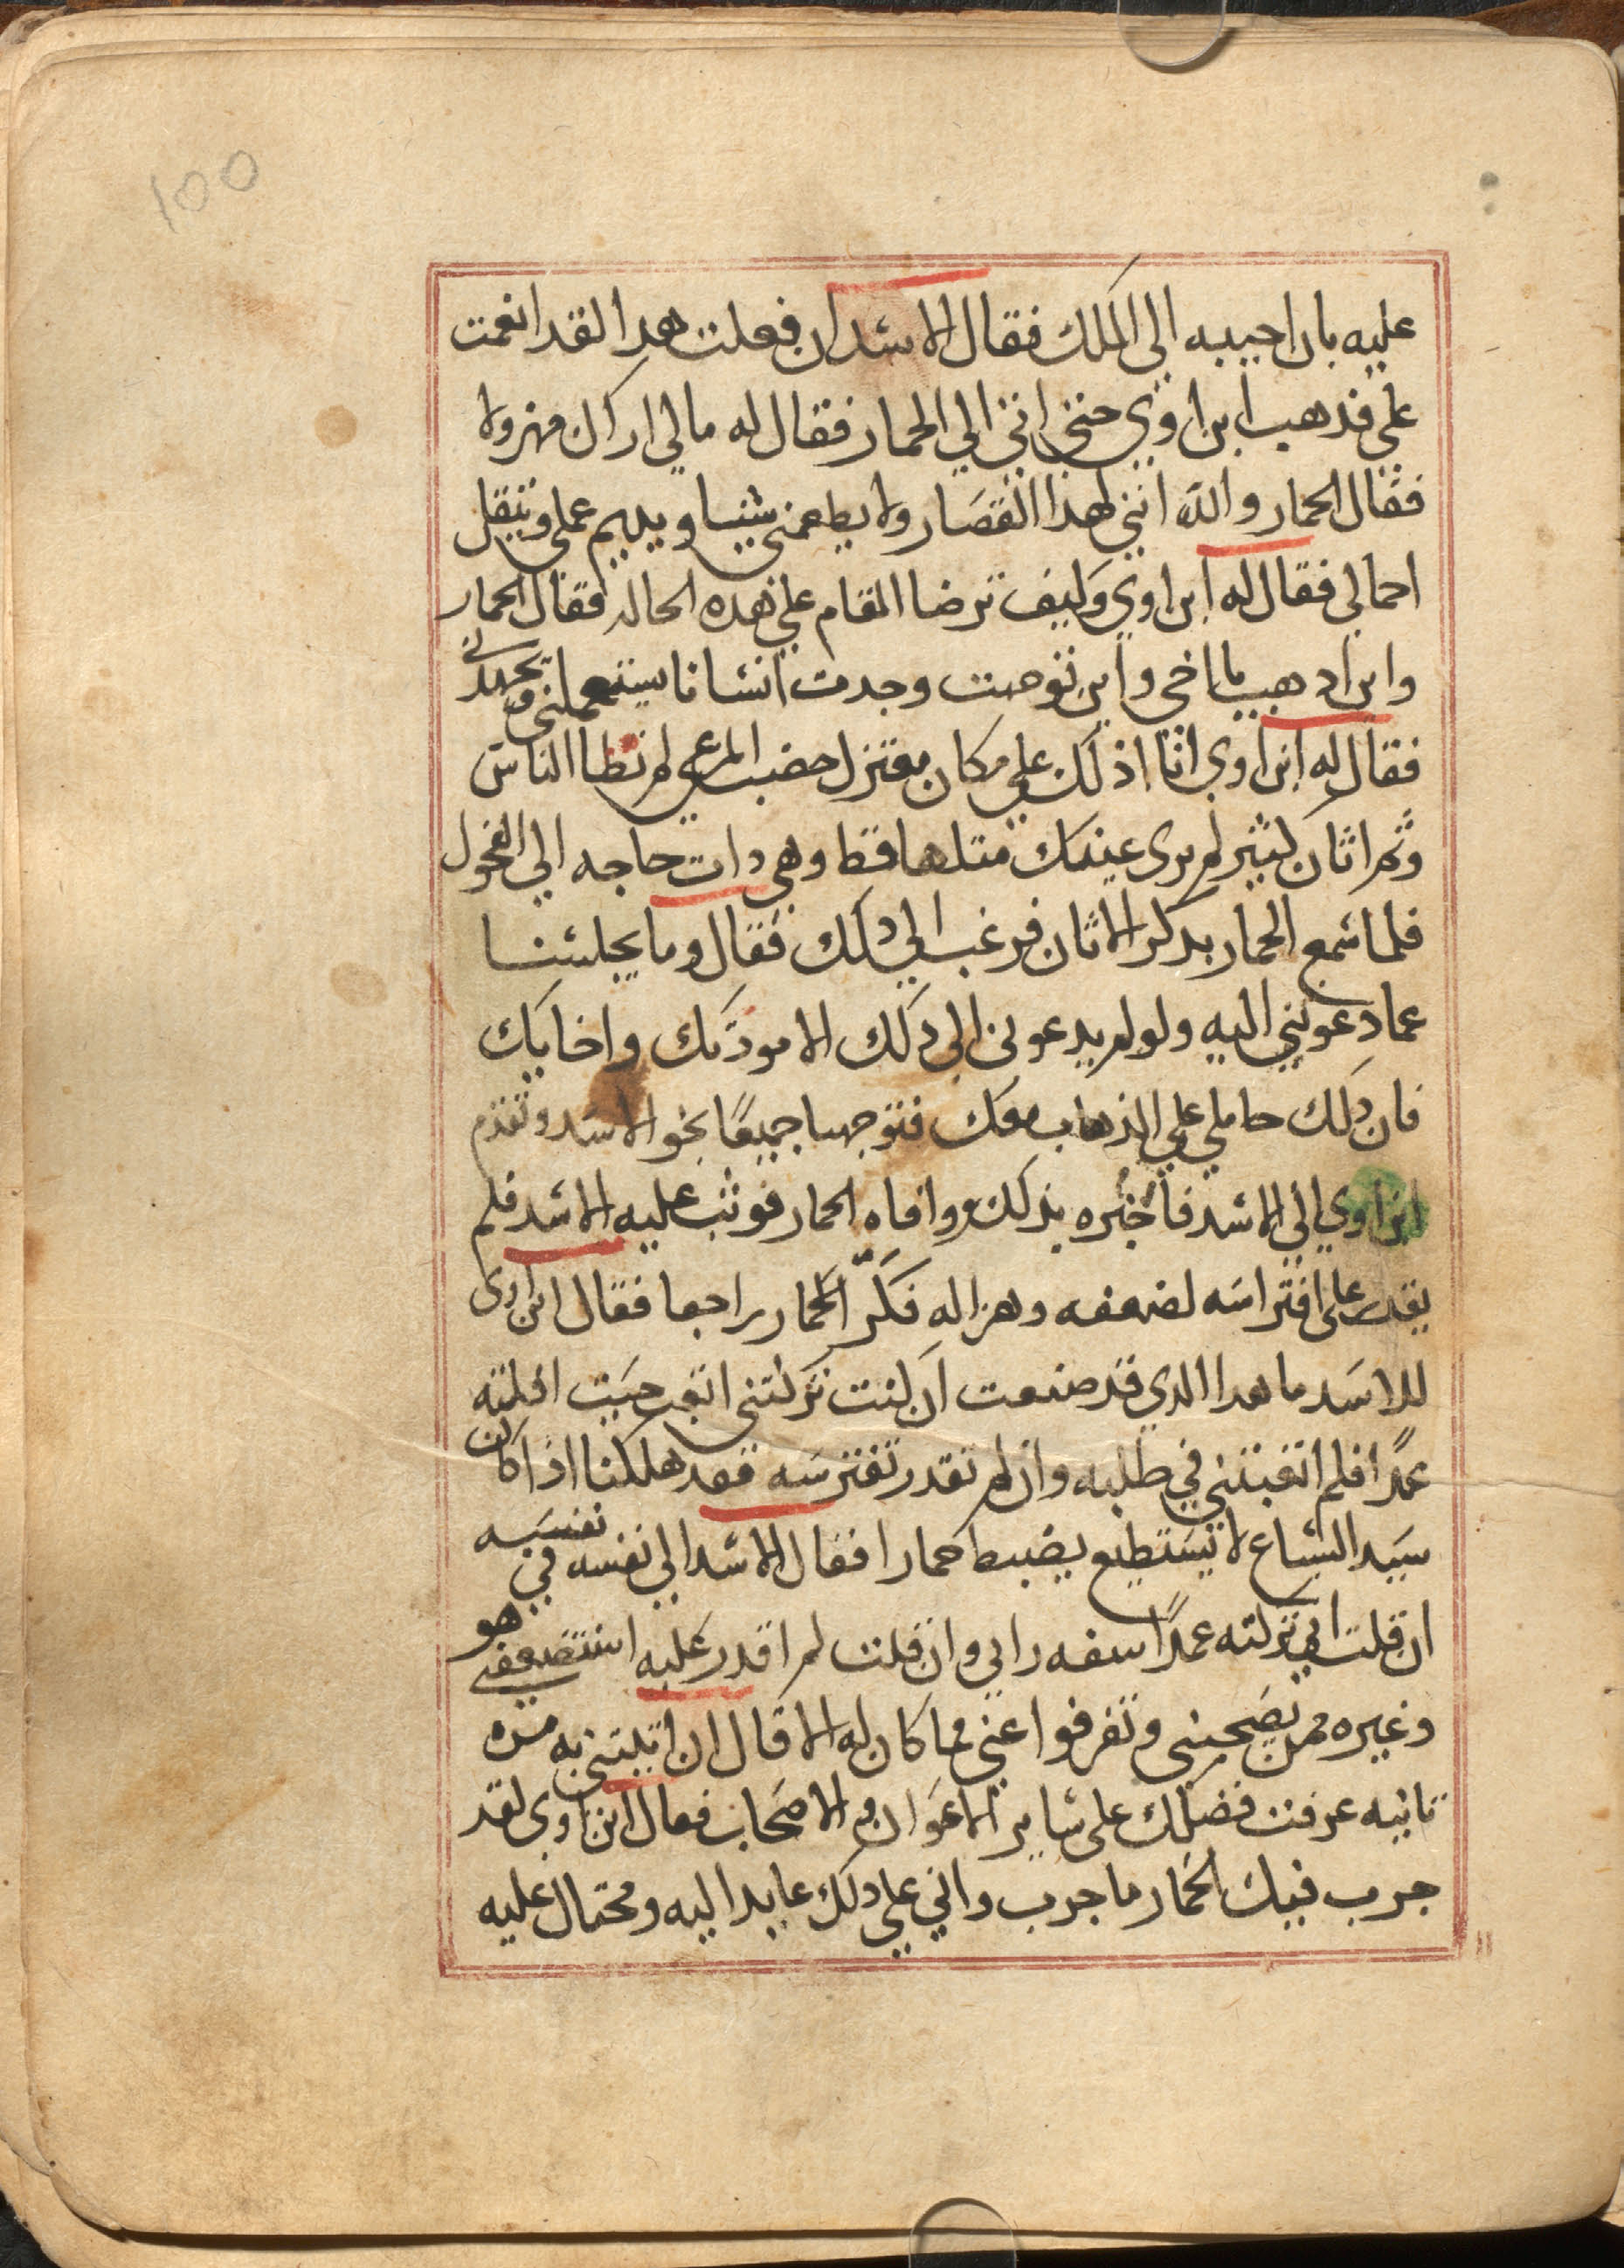 100
عليه بان اجيبه الي الملك فقال الاسد ان فعلت هدا لقد انعمت
علي فدهب ابن اوي حتي اتي الي الحمار فقال له مالي اراك مهزولا
فقال الحمار والله انني لهذا القصار ولا يطعمني شيا ويديم عملي وينقل
احمالي فقال له ابن اوي وكيف ترضا المقام علي هده الحاله فقال الحمار
واين ادهب يا اخي واين توجهت وجدت انسانا يستعملني ويجهدني
فقال له ابن اوي انا ادلك علي مكان معتزل خصب المرعي لم تطا الناس
وثم اتان كثير لم يري عينك متلها قط وهي دات حاجه الي الفحول
فلما سمع الحمار بدكر الاتان فرغب الي دلك فقال وما يجلسنا
عما دعوتني اليه ولو لم يدعوني الي دلك الا مودتك واخايك
فان دلك حاملي علي الذهاب معك فتوجها جميعًا نحو الاسد وتقدم
ابن اوي الي الاسد فاخبره بذلك ووافاه الحمار فوثب عليه الاسد فلم
يقدر علي افتراسه لضعفه وهزاله فكرّ الحمار راجعا فقال ابن اوي
للاسد ما هدا الدي قد صنعت ان كنت تركتني اتعب حيت افلته
عمدًا فلم اتعبتني في طلبه وان لم تقدر تفترسه فقد هلكنا اذا كان
سيد السباع لا يستطيع يضبط حمارا فقال الاسد الي نفسه في نفسه
ان قلت اني تركته عمدًا سفه رايي وان قلت لم اقدر عليه استضعفني هو
وغيره ممن يصحبني وتفرقوا عني فما كان له الا قال ان اتيتني به مره
تانيه عرفت فضلك علي ساير الاعوان والاصحاب فقال ابن اوي لقد
جرب فيك الحمار ما جرب واني علي دلك عايدا اليه ومحتال عليه